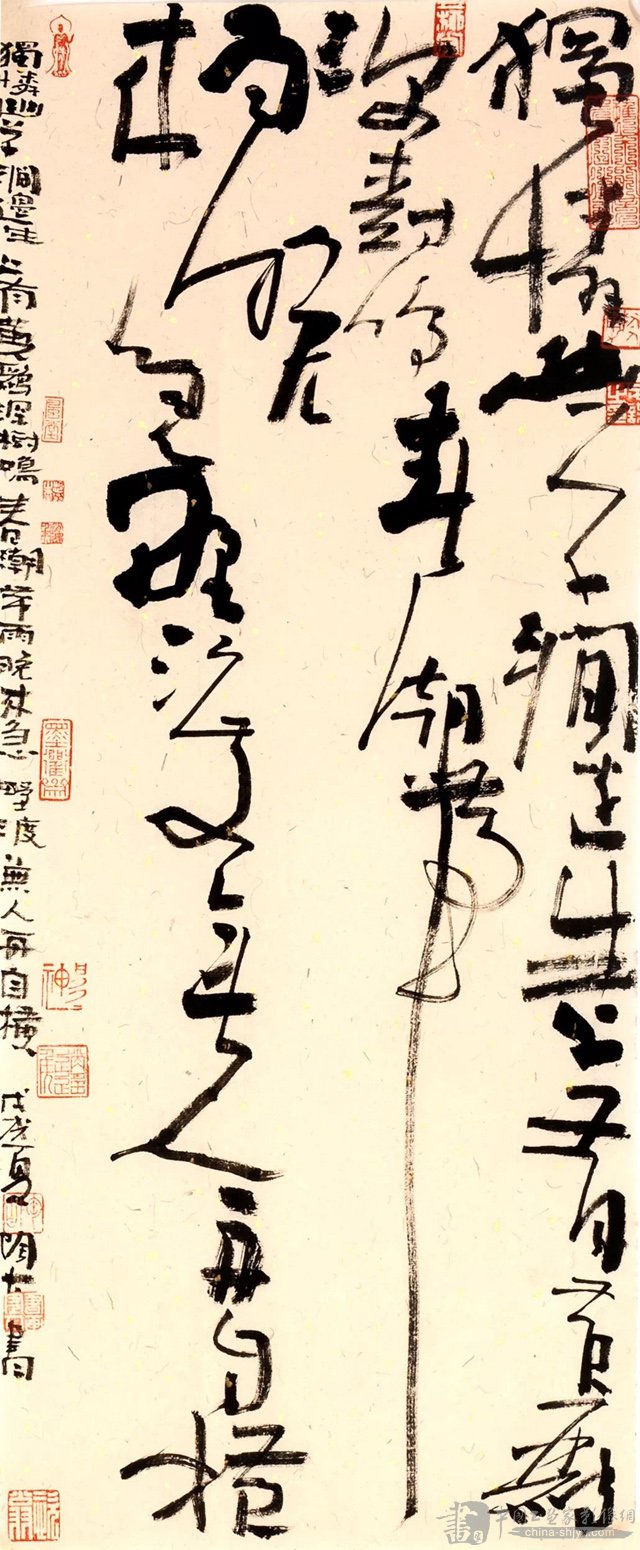 獨憐幽草澗邊生上有黃鸝
深樹鳴春潮帶
雨晚
來急野渡無人舟自橫
獨憐幽草澗邊生上有黃鸝深樹鳴春潮帶雨晚來急野渡無人舟自橫 戊戌夏 書